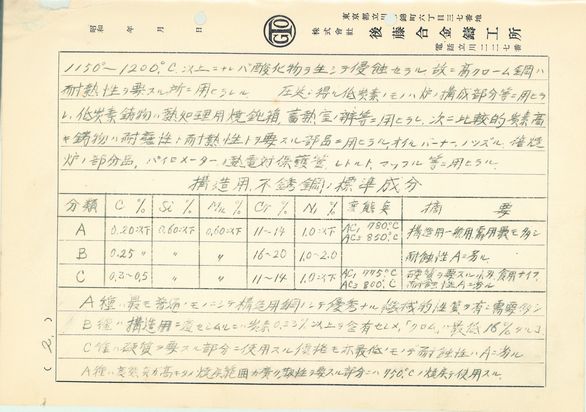 東京都立川市錦町六丁目三七番地
株式会社 後藤合金鋳工所
電話立川二二七番
昭和 年 月 日
1150°~1200°C以上ニナレバ酸化物ヲ生シテ侵蝕セラル、故ニ高クローム鋼ハ
耐熱性ヲ要スル所ニ用ヒラレル
低炭素鋳物ハ熱処理用焼鈍箱、蓄熱室ノ瓣等ニ用ヒラレ、次ニ比較的炭素高
キ鋳物ハ耐磨性ト耐熱性トヲ要スル部品ニ用ヒラル、オイルバーナー、ノッズル、
炉ノ部分品、パイロメーター、熱電対保護管、レトルト、マッフル等ニ用ヒラル
構造用不銹鋼ノ標準成分
分類 C % Si % Mn % Cr % Ni % 変態点 摘要
A 0.20以下 0.60以下 0.60以下 11~14 1.0以下 AC₁ 780°C AC₃ 850°C 構造用一般用需用最モ多シ
B 0.25〃 〃 〃 16~20 1.0~2.0 耐蝕性Aニ劣ル
C 0.3~0.5 〃 〃 11~14 1.0以下 AC₁ 775°C AC₃ 800°C 硬質ヲ要スル 食用ナイフ 耐蝕性Aニ劣ル
A種ハ最モ普通ノモノニテ構造用鋼トシテ優秀ナル機械的性質ヲ有シ需要多シ
B種ハ構造用ニ 炭素0.25%以上ヲ含有セシメ、クロムハ最低16%
C種ハ硬質ヲ要スル部分ニ使用スル価格モ亦最低ノモノデ耐蝕性ハAニ劣ル
A種ハ変態点ガ高キタメ焼戻範囲ガ 性ヲ要スル部分ニハ750°C焼戻シ使用スル
(2)